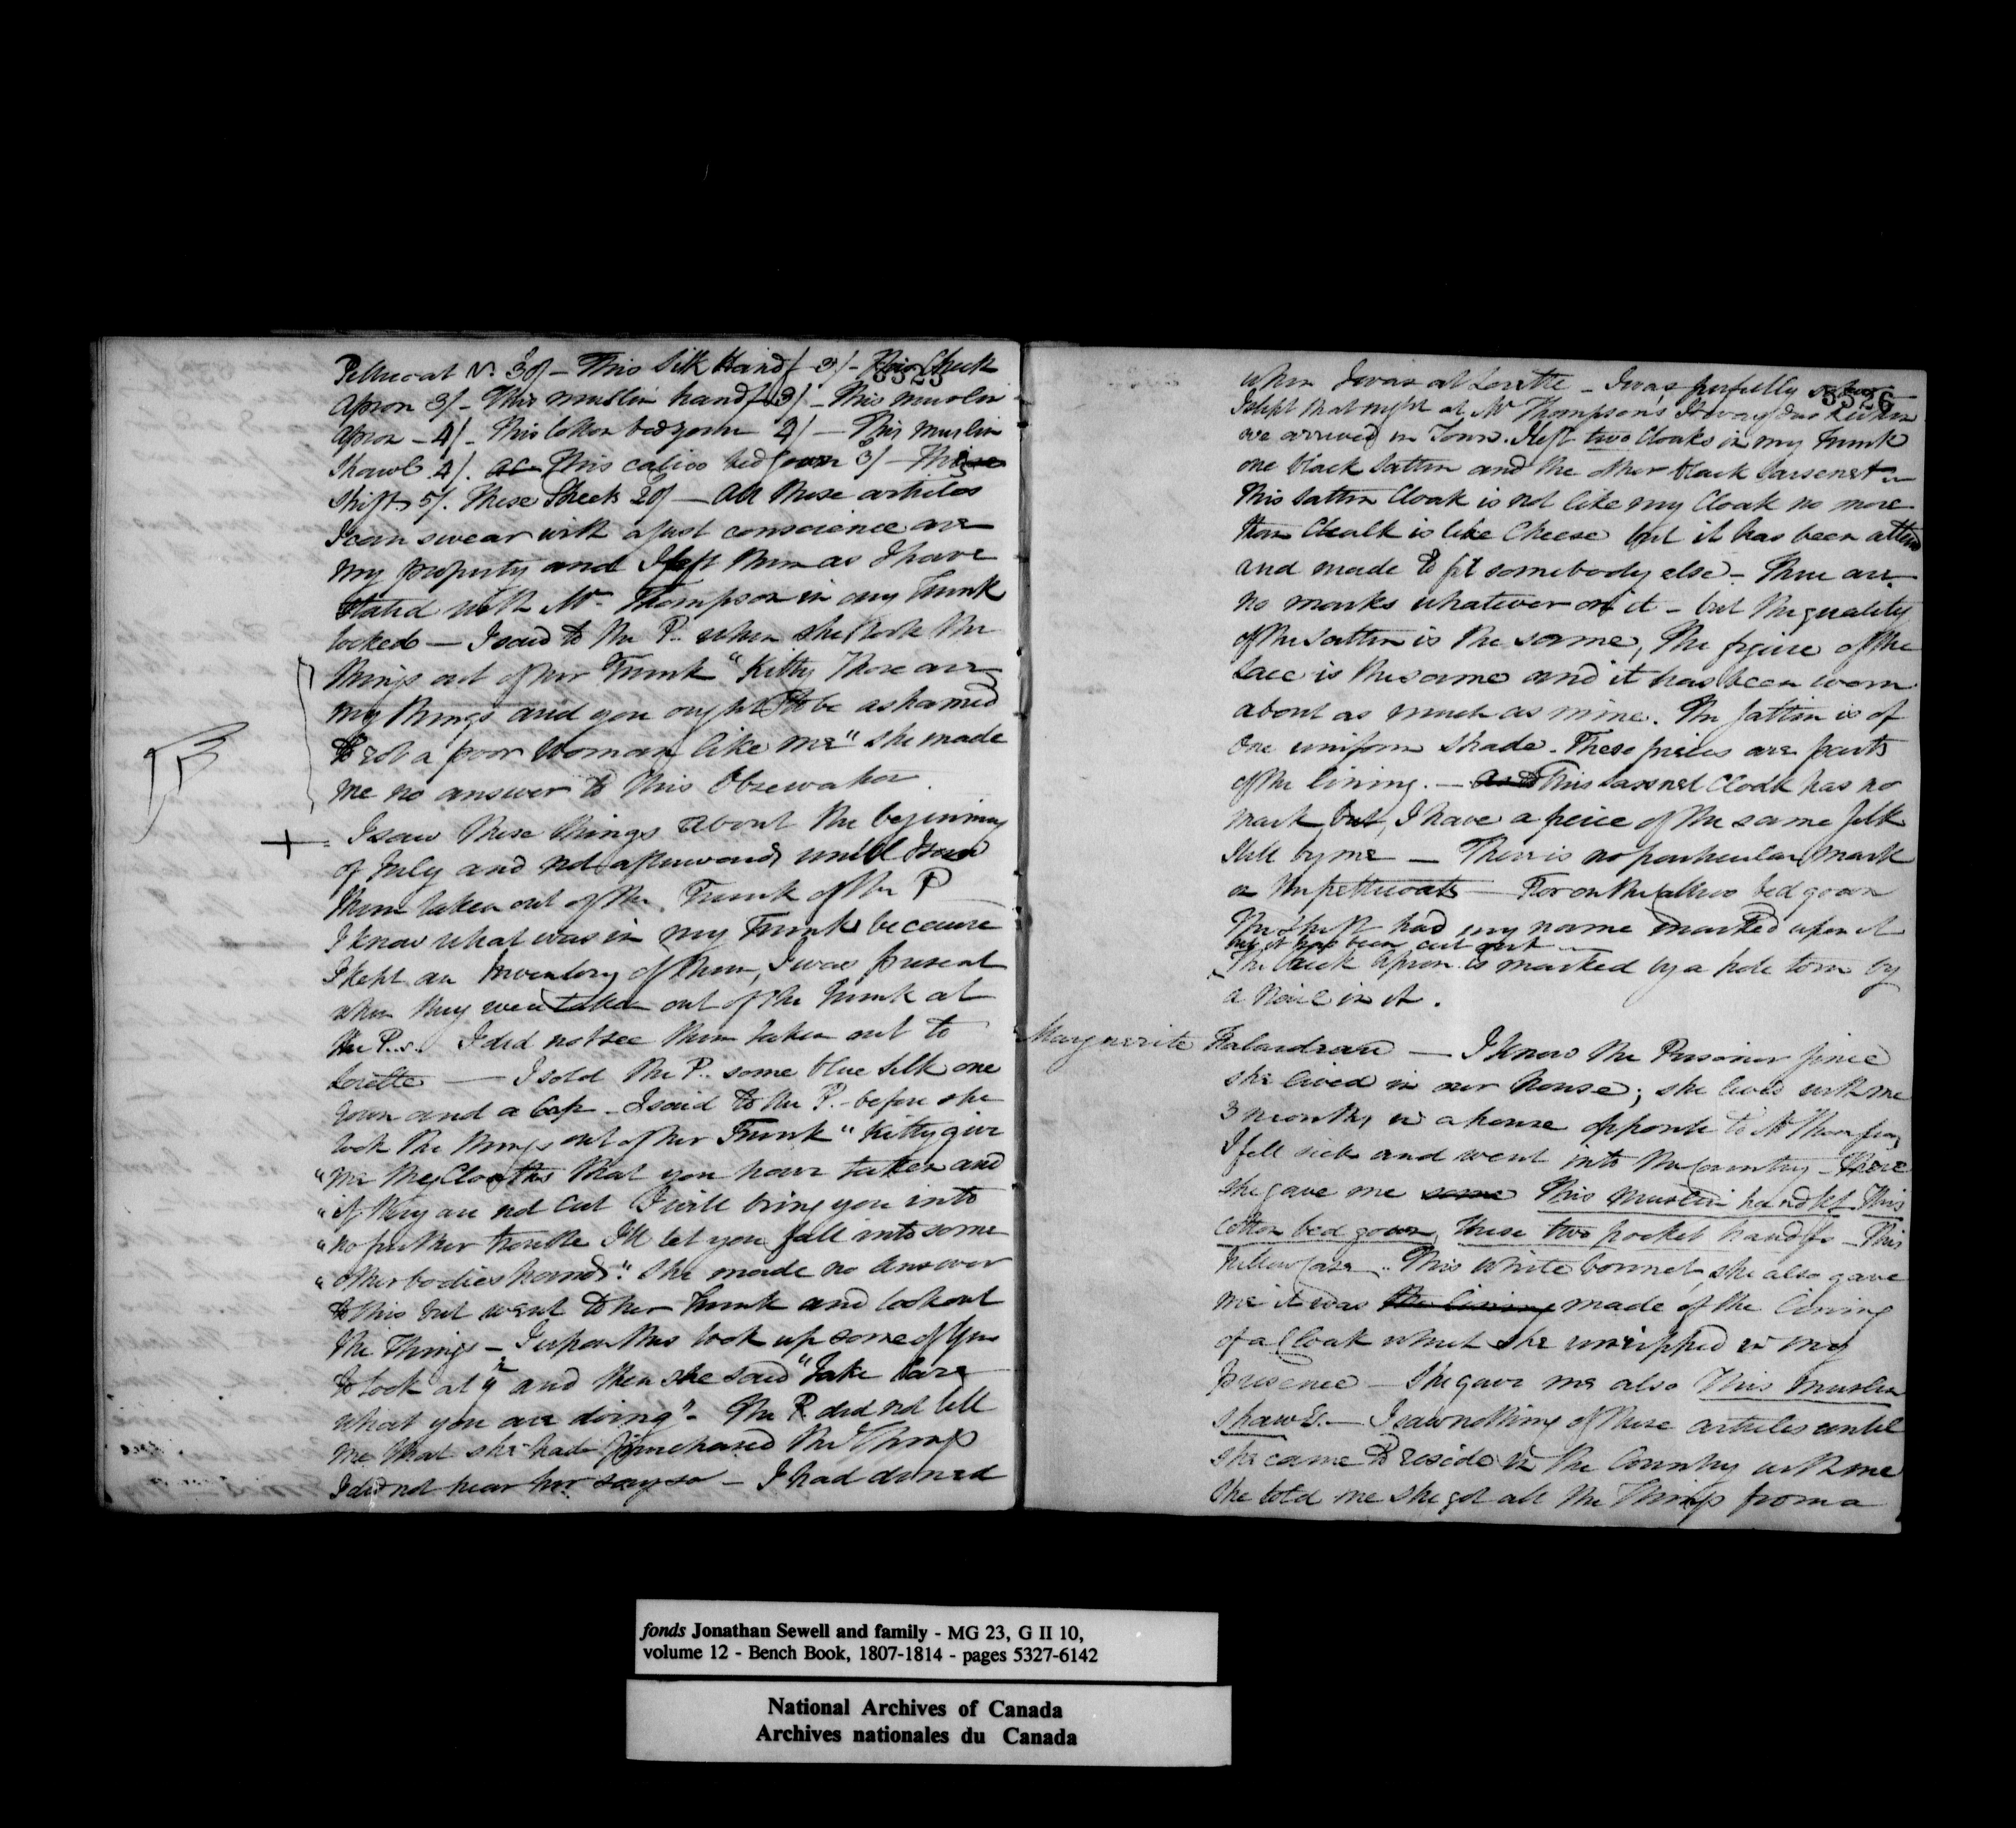 Petticoat V. 30/ - This Silk Handf 3/ - This Check
5325
Apron 3/ - This muslin handf 3/ - This muslin
Apron - 4/ - This Cotton bedgown 4/ - This muslin
Shawl 4/. This calico bed gown 3/ - These
Shift 5/. These Sheets 20/ - All these articles
I can swear with a just conscience are
my property and I left them as I have
stated with Mr. Thompson in my Trunk
locked - I said to the P.. when she took the
things out of her Trunk "Kitty These are
my things and you ought to be ashamed
to rob a poor Woman like me" she made
me no answer to this Observation.
+ I saw these things about the beginning
of July and not afterwards until I saw
them taken out of the Trunk of the P
I know what was in my Trunk because
I kept an Inventory of them, I was present
when they were taken out of the Trunk at
the P..s. I did not see them taken out to
Lorette - I sold the P.. some blue silk one
Gown and a Cap - I said to the P. - before she
took the things out of her Trunk "Kitty give
"me the Cloathes that you have taken and
"if they are not cut I will bring you into
"no further trouble I'll let you fall into some
"other bodies hands". She made no Answer
to this but went to her Trunk and took out
the Things - I upon this took up some of them
to look at ym and then she said "Take Care
what you are doing" - The P. did not tell
me that she had purchased the Things
I did not hear her say so - I had dined
when I was at Lorette - I was perfectly sober -
5326
I slept that night at Mr Thompson's It was when
we arrived in Town. I left two Cloaks in my Trunk
one black Sattin and the other black Sarsenet -
This Sattin Cloak is not like my Cloak no more
than Chalk is like Cheese but it has been altered
and made to fit somebody else - There are
no marks whatever on it - but the quality
of the Sattin is the same, the figure of the
Lace is the same and it has been worn
about as much as mine. The Sattin is of
One uniform Shade. These pieces are parts
of the lining. - This Sarsnet Cloak has no
mark but, I have a peice of the same Silk
still by me - There is no particular mark
on the petticoats - For on the Calico bed gown
The Shift had my name marked upon it
but it has been cut out -
The Check Apron is marked by a hole torn by
a Nail in it.
Marguerite Falardeau - I know the Prisoner since
she lived in our house; she lived with me
3 months in a house opposite to Mr Thompson,
I fell sick and went into the Country - There
she gave me some This muslin handkf This
Cotton bed gown, these two pocket handfs - This
Pillow Case .. This White bonnet, she also gave
me it was the lining made of the lining
of a Cloak which she unripped in my
presence - She gave me also This Muslin
Shawl. - I saw nothing of these articles until
she came to reside in the Country with me
She told me she got all the Things from a
fonds Jonathan Sewell and family - MG 23, G II 10,
volume 12 - Bench Book, 1807-1814 - pages 5327-6142
National Archives of Canada
Archives nationales du Canada